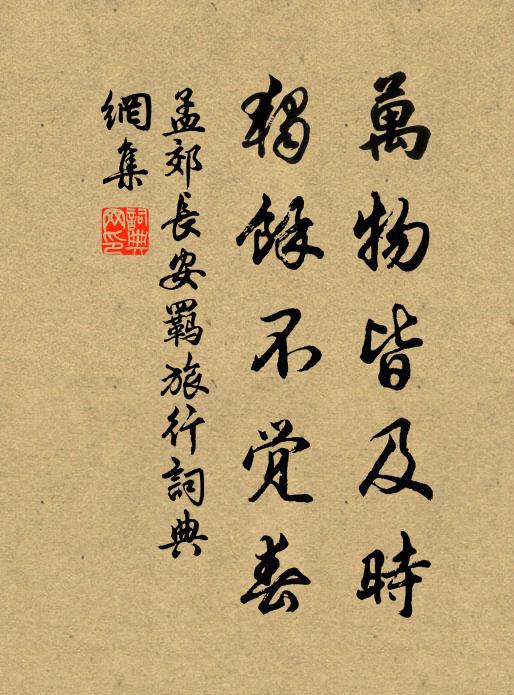 萬物皆及時
獨餘不覺春
孟郊長安羈旅行詞典
網集
詞典
网印